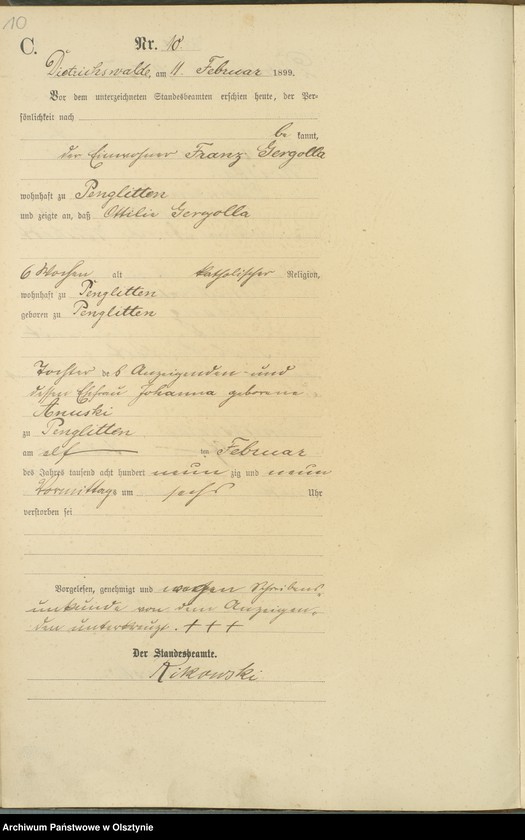 10
C.
Nr. 10.
Dietrichswalde, am 11. Februar 1899.
Vor dem unterzeichneten Standesbeamten erschien heute, der Per-
sönlichkeit nach
be kannt,
der Einwohner Franz Gergolla
wohnhaft zu Penglitten
und zeigte an, daß Ottilie Gergolla
6 Wochen alt katholischer Religion,
wohnhaft zu Penglitten
geboren zu Penglitten
Tochter des Anzeigenden und
dessen Ehefrau Johanna geborene
Anuski
zu Penglitten
am elf ten Februar
des Jahres tausend acht hundert neun zig und neun
Vormittags um sechs Uhr
verstorben sei
Vorgelesen, genehmigt und wegen Schreibens
unkunde von dem Anzeigen-
den unterkreuzt. + + +
Der Standesbeamte.
Rikowski
Archiwum Państwowe w Olsztynie